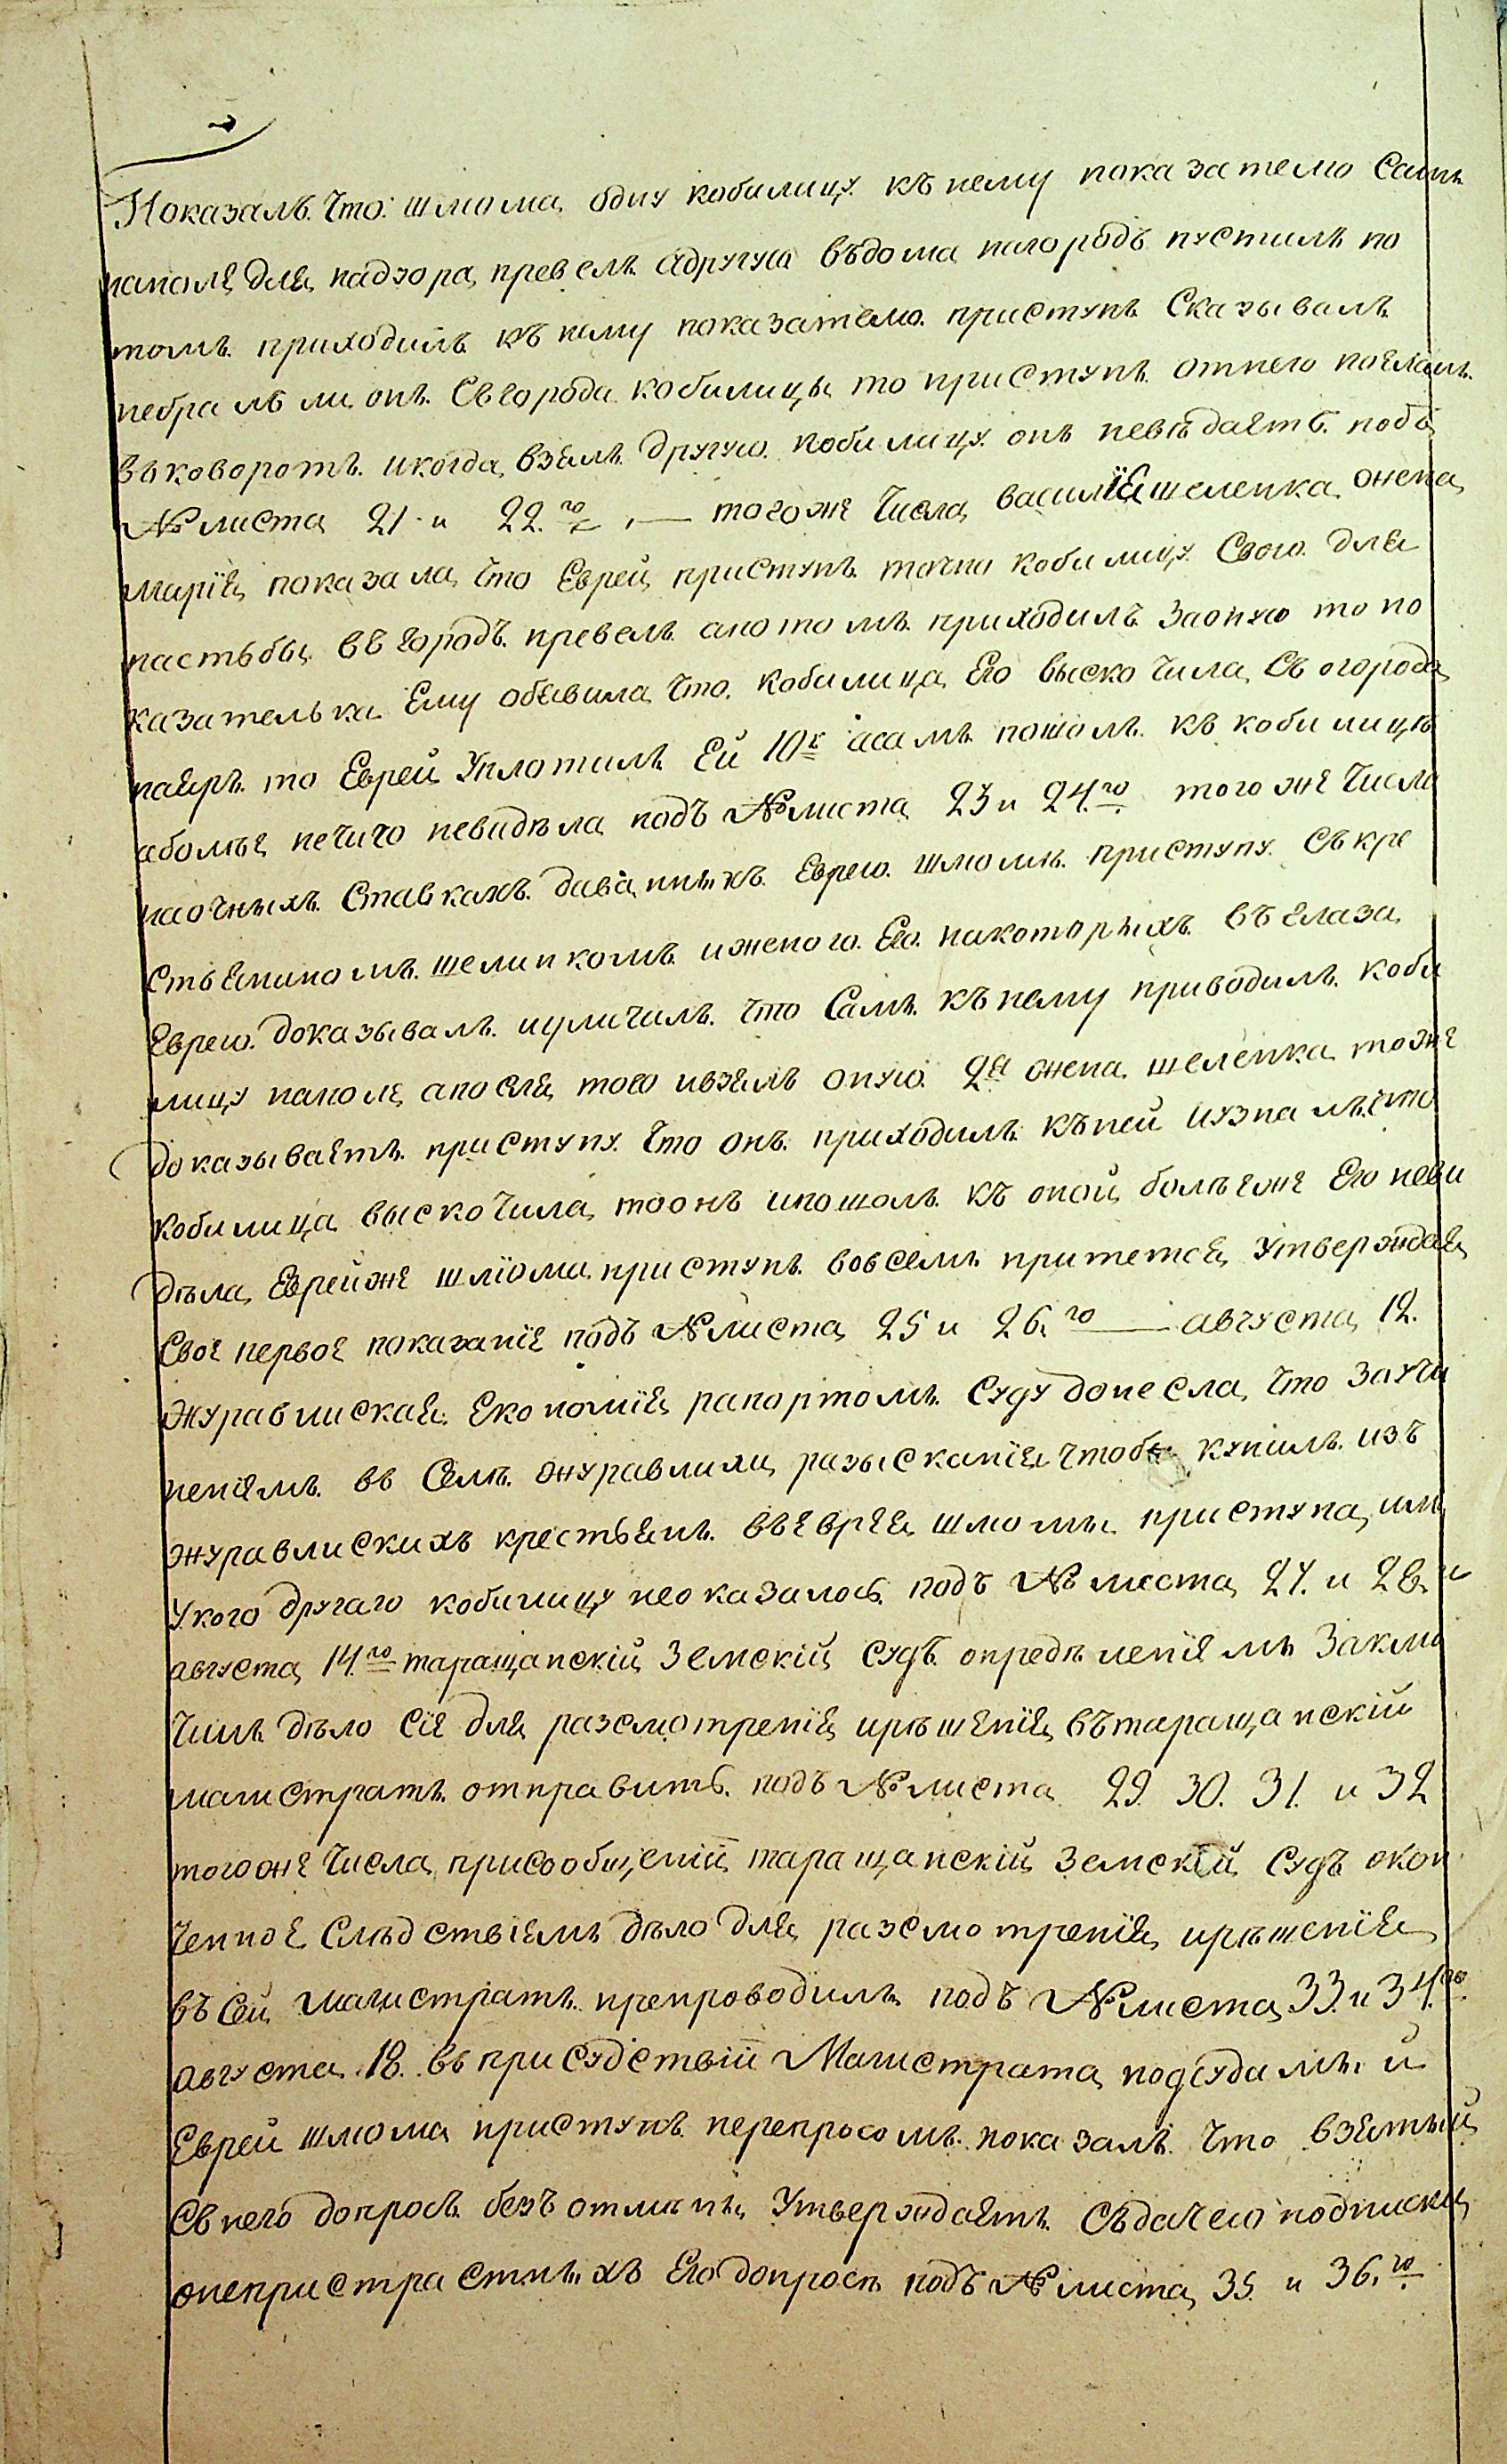 Показалъ. Что: шмюма, одну кобилицу. къ нему показателю Самъ
наполе, для, надзора, превелъ адругую въдома нагородъ пустилъ по
томъ. приходилъ къ нему показателю. приступъ Сказывалъ
небралъ ли онъ. Свгорода кобилицы то приступъ. отнего поелалъ.
въковоротъ. икогда, взялъ. другую. кобилицу. онъ невѣдаетъ. подъ
№ листа, 21. и 22.го — тогоже Числа, василїя шелепка, жена,
марїя, показала, что Еврей, приступъ. точно кобилицу. Свою. для
пастьбы, въ городъ. превелъ. апотомъ. приходилъ заоную то по
казателька Ему обявила, Что. кобилица, Его выскочила, Съ огорода,
наяръ. то Еврей Уплотилъ. Ей 10к асамъ пошолъ. къ кобилицѣ
аболѣе, нечиго невидѣла, подъ № листа, 23 и 24.го того же Числа
наочныхъ. Ставкахъ. даванныхъ. Еврею. шмюмѣ. приступу. Съ кре
стьяниномъ. шелипкомъ. иженого. Его. накоторыхъ. въ глаза,
Еврею. доказывалъ. иуличилъ. Что Самъ. къ нему приводилъ. коби
лицу наполе, апосля, того ивзялъ оную. 2я жена, шелепка, тоже
доказываетъ. приступу. Что онъ. приходилъ. къ ней иузналъ. что
кобилица выскочила, тоонъ ипошолъ. къ оной, болѣеже Его неви
дѣла, Еврейже шлїома, приступъ. вовсемъ притется, Утверждая,
Свое первое показанїе подъ № листа, 25 и 26.го — августа, 12.
журавлиская. Економїя, рапортомъ. Суду донесла, Что заучи
ненїемъ. въ Селѣ. журавлихи, разысканїя чтобы купилъ. изъ
журавлискихъ крестьянъ. въ еврея, шмюмы. приступа, или
Укого другаго кобилицу неоказалось. подъ № листа, 27. и 28.и
августа, 14.го таращанскїй Земскїй Судъ. опредѣленїемъ Заклю
Чилъ дѣло Сїе для, разсмотренїя, ирѣшенїя, въ таращанскїй
магистратъ. отправить. подъ № листа, 29. 30. 31. и 32
тогоже Числа, присообщенїи таращанскїй Земскїй Судъ окон
Ченное Слѣдствїемъ дѣло для, разсмотренїя, ирѣшенїя,
въ Сей, магистратъ. препроводилъ подъ № листа, 33. и 34.го
августа, 18. въ присудствїи Магистрата, подсудимъ. й
Еврей шмюма приступъ. перепросомъ. показалъ. Что взятый
Съ него допросъ. безъ отмѣны, Утверждаетъ. Съдачею подписки,
онепристрастныхъ Его допросѣ подъ № листа, 35. и 36.го